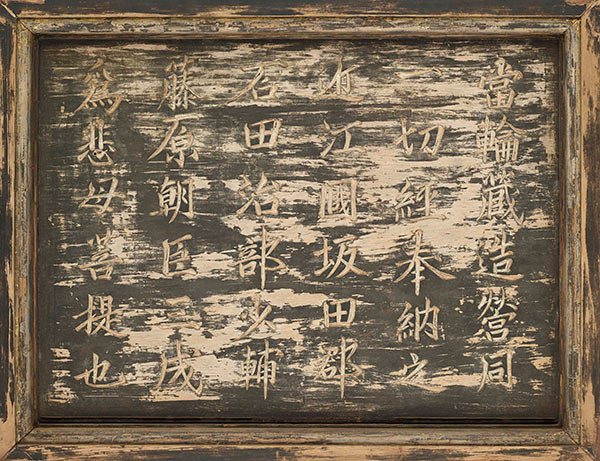 當輪藏造營同
一切経奉納之
近江國坂田郡
石田治部少輔
藤原朝臣三成
爲悲母菩提也